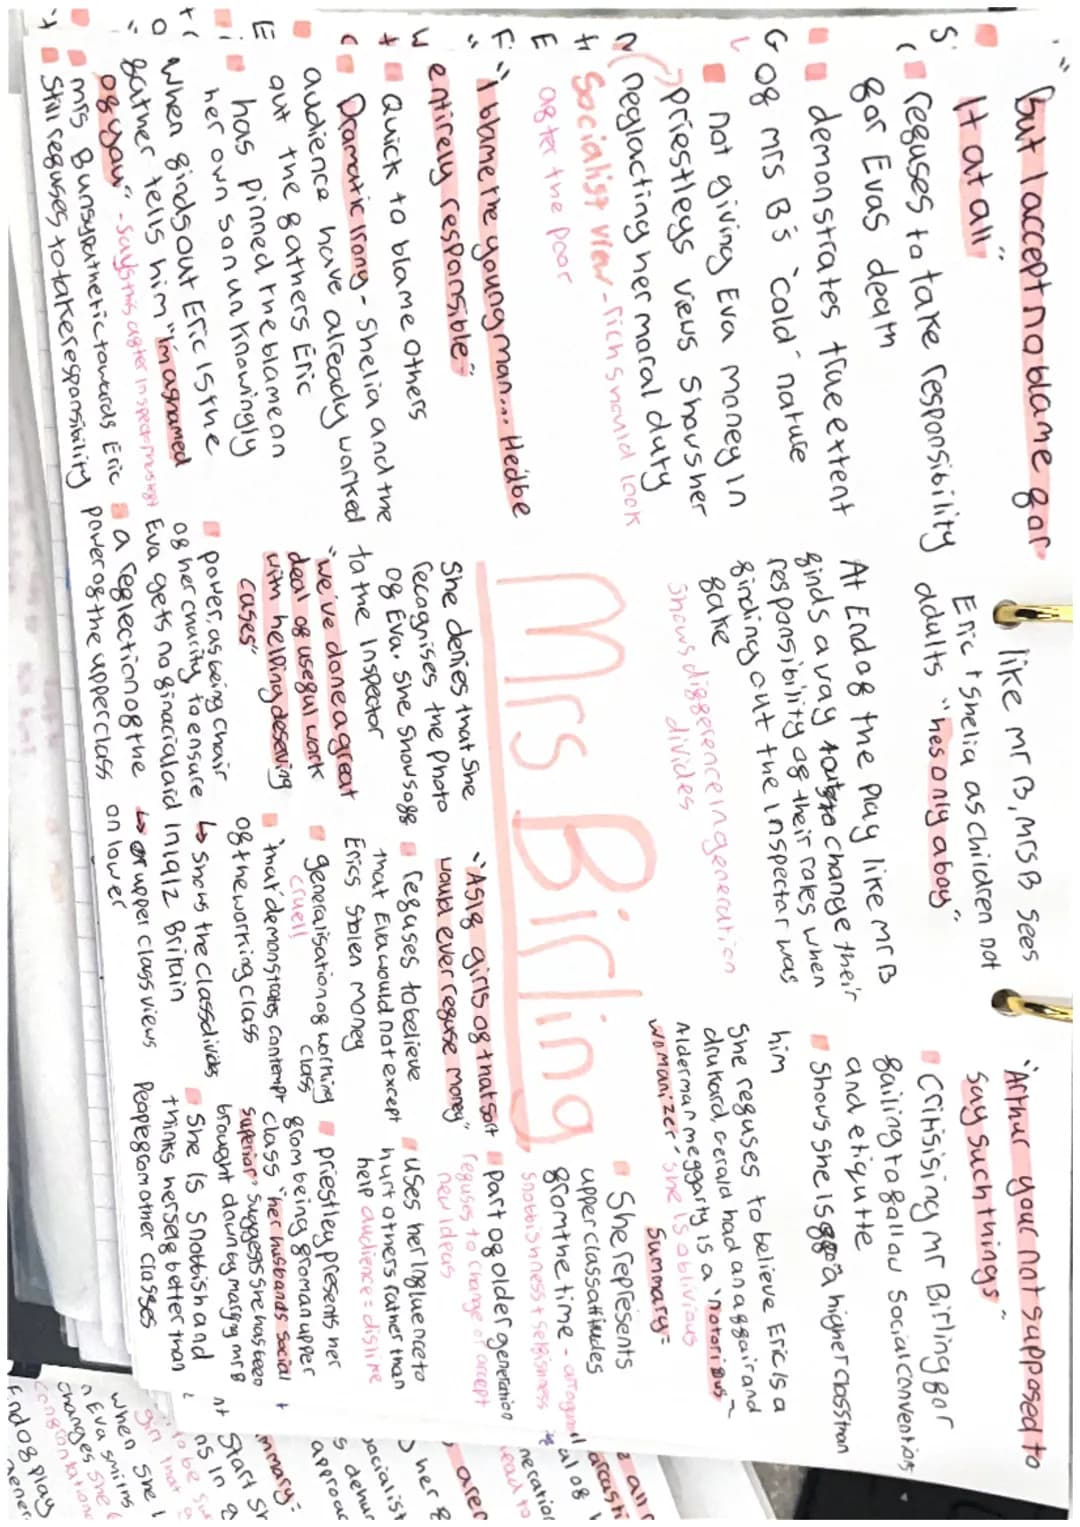 "But I accept no blame for
It at all"
refuses to take responsibility
for Evas death
demonstrates true extent
of mrs B's 'cold' nature
not giving Eva money in
priestleys views shows her
neglacting her moral duty
Socialist view - rich should look
after the poor
"I blame the young man... Hedbe
entirely responsible"
Quick to blame others
Dramatic Irony - Shelia and the
audience have already worked
out the fathers Eric
has pinned the blame on
her own son unknowingly
When finds out Eric is the
father tells him "I'm ashamed
of you" - says this after Inspector left
mrs B unsypathetic towards Eric
Still refuses to take responsibility
like mr B, mrs B sees
Eric + Shelia as children not
adults "hes only a boy"
At End of the play like mr B
finds a way to change their
responsibility of their roles when
finding out the Inspector was
fake
shows difference in generation
divides
Mrs Birling
She denies that she
recognises the photo
of Eva. She shows off
to the Inspector
"we've done a great
deal of useful work
with helping deserving
cases"
power, as being chair
of her charity to ensure
Eva gets no finacial aid In 1912 Britain
a reflection of the
power of the upper class
↳ shows the class divides
↳ of upper class views
on lower
"As if girls of that sort
would ever refuse money"
refuses to believe
that Eva would not except
Erics stolen money
generalisation of working
class
cruel!
that demonstrates contempt
of the working class
"Arthur your not supposed to
say such things"
Critisising mr Birling for
failing to follow social conventions
and etiqutte
Shows she is of a higher class than
him
She refuses to believe Eric is a
drukard, Gerald had an affair and
Alderman meggarty is a "notorious
womanizer" she is oblivious
Summary=
She represents
upper class attitudes
from the time - arrogant
snobbishness + selfishness
part of older generation
refuses to change or accept
new ideas
uses her influence to
hurt others rather than
help audience = dislike
priestley presents her
from being from an upper
class "her husbands social
superior" suggests she has been
brought down by marying mr B
She is snobbish and
thinks herself better than
people from other classes